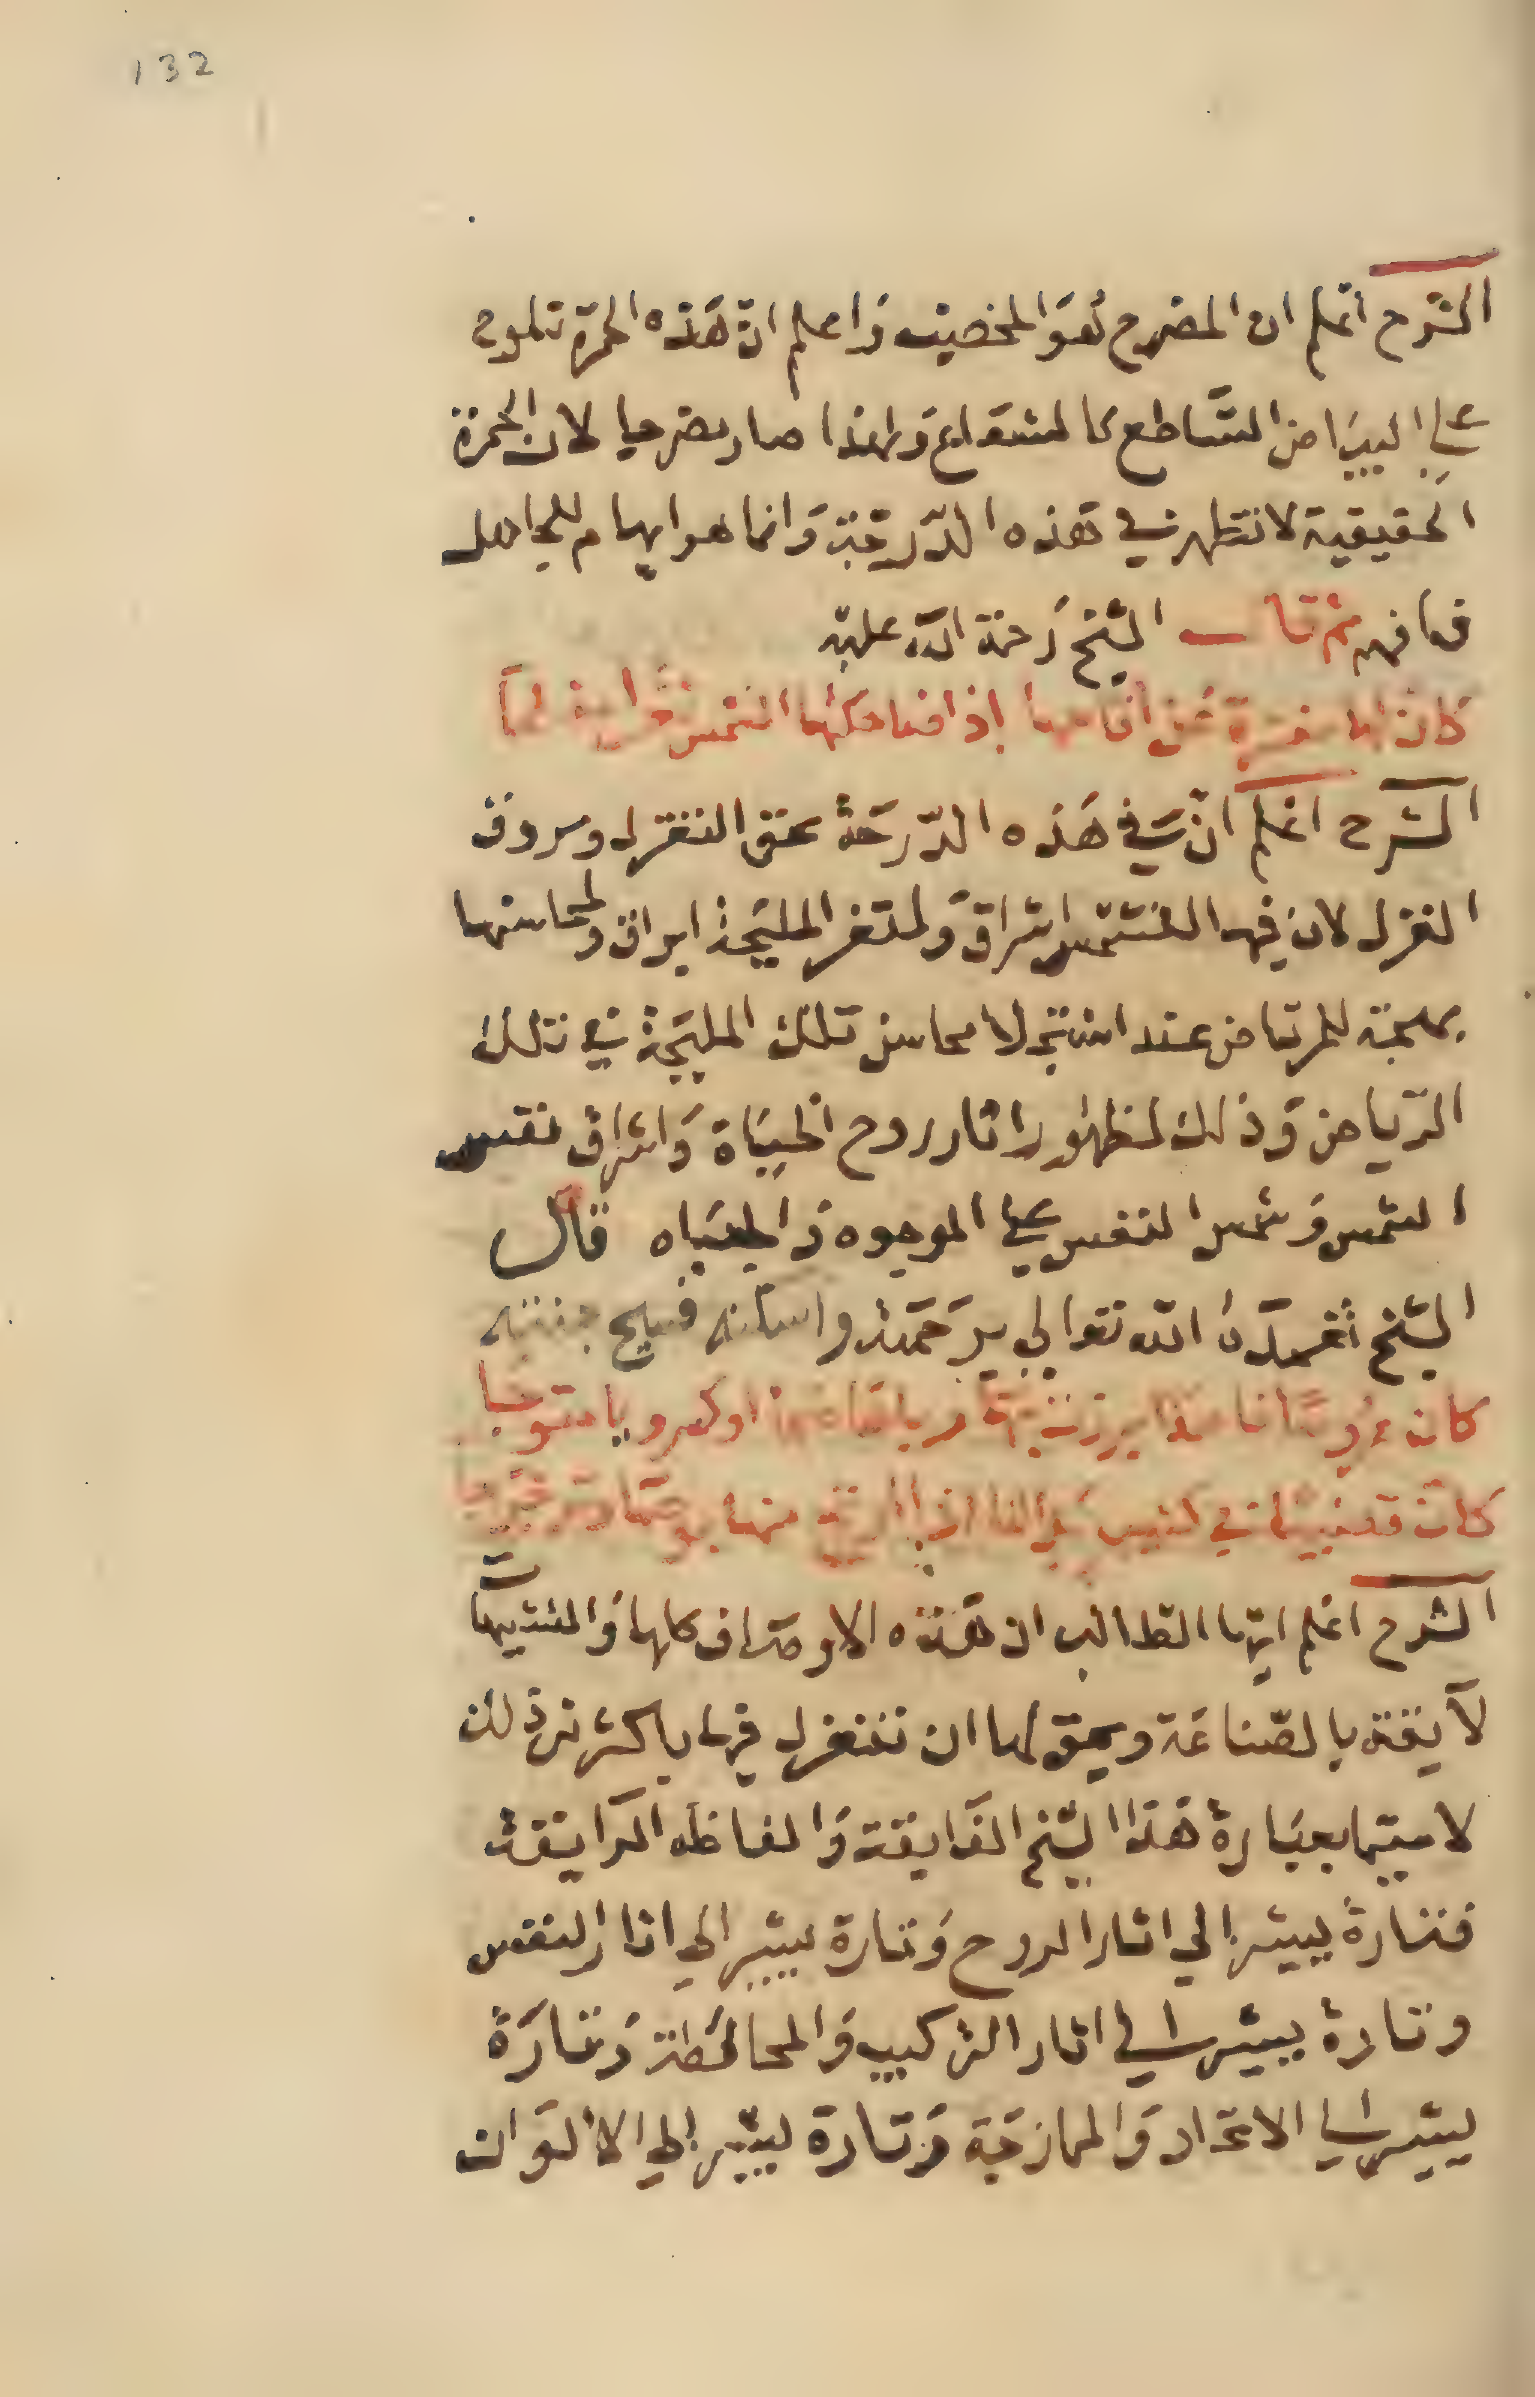 132
الشرح اعلم ان المضرح هُوَ المخضب وَاعلم انّ هَذه الحمرة تلوح
علي البيَاض السَّاطع كالشعَاع وَلهذا صار مضرحا لان الحمرة
الحقيقية لا تظهر في هَذه الدّرجَة وَانما هو ايهام للجاهل
فافهم ثم قال الشيخ رَحمة الله عليه
كان اذا ضاحكها الشمس
الشرح اعلم انّ في هَذه الدّرجَة يحق التغزل ويروق
الغزل لان فيها للشّمس اشراق وَلثغر المليحَة ابراق ولمحاسنها
بهجة للمرتاض عند استجلا محاسن تلك المليحَة في تلك
الرّياض وَذلك لظهور اثار روح الحيَاة وَاشراق نفس
الشمس وَشمس النفس علي الوجوه وَالجبَاه قال
الشيخ تغمّدَهُ الله تعالي برَحمَته واسكنه فسيح جنته
كان
كان قد في منها
الشرح اعلم ايّها الطالب ان هَذه الاوصَاف كلها وَالتشبيهات
لآيقة بالصّناعَة ويحق لها ان نتغزل فيها باكثر من ذلك
لا سيّما بعبَارة هَذا الشيخ الفَايقة وَالفاظه الرايقة
فتارة يشير الي اثار الروح وَتارة يشير الي اثار النفس
وتارة يشير الي اثار التركيب وَالمخالطة وَتارَة
يشير الي الاتحاد وَالممازجَة وَتارة يشير الي الالوَان